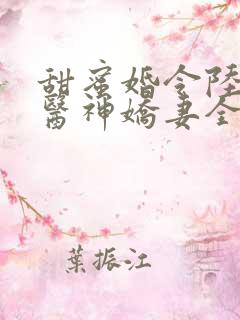 甜蜜婚令陸
醫神嬌妻全
葉振江